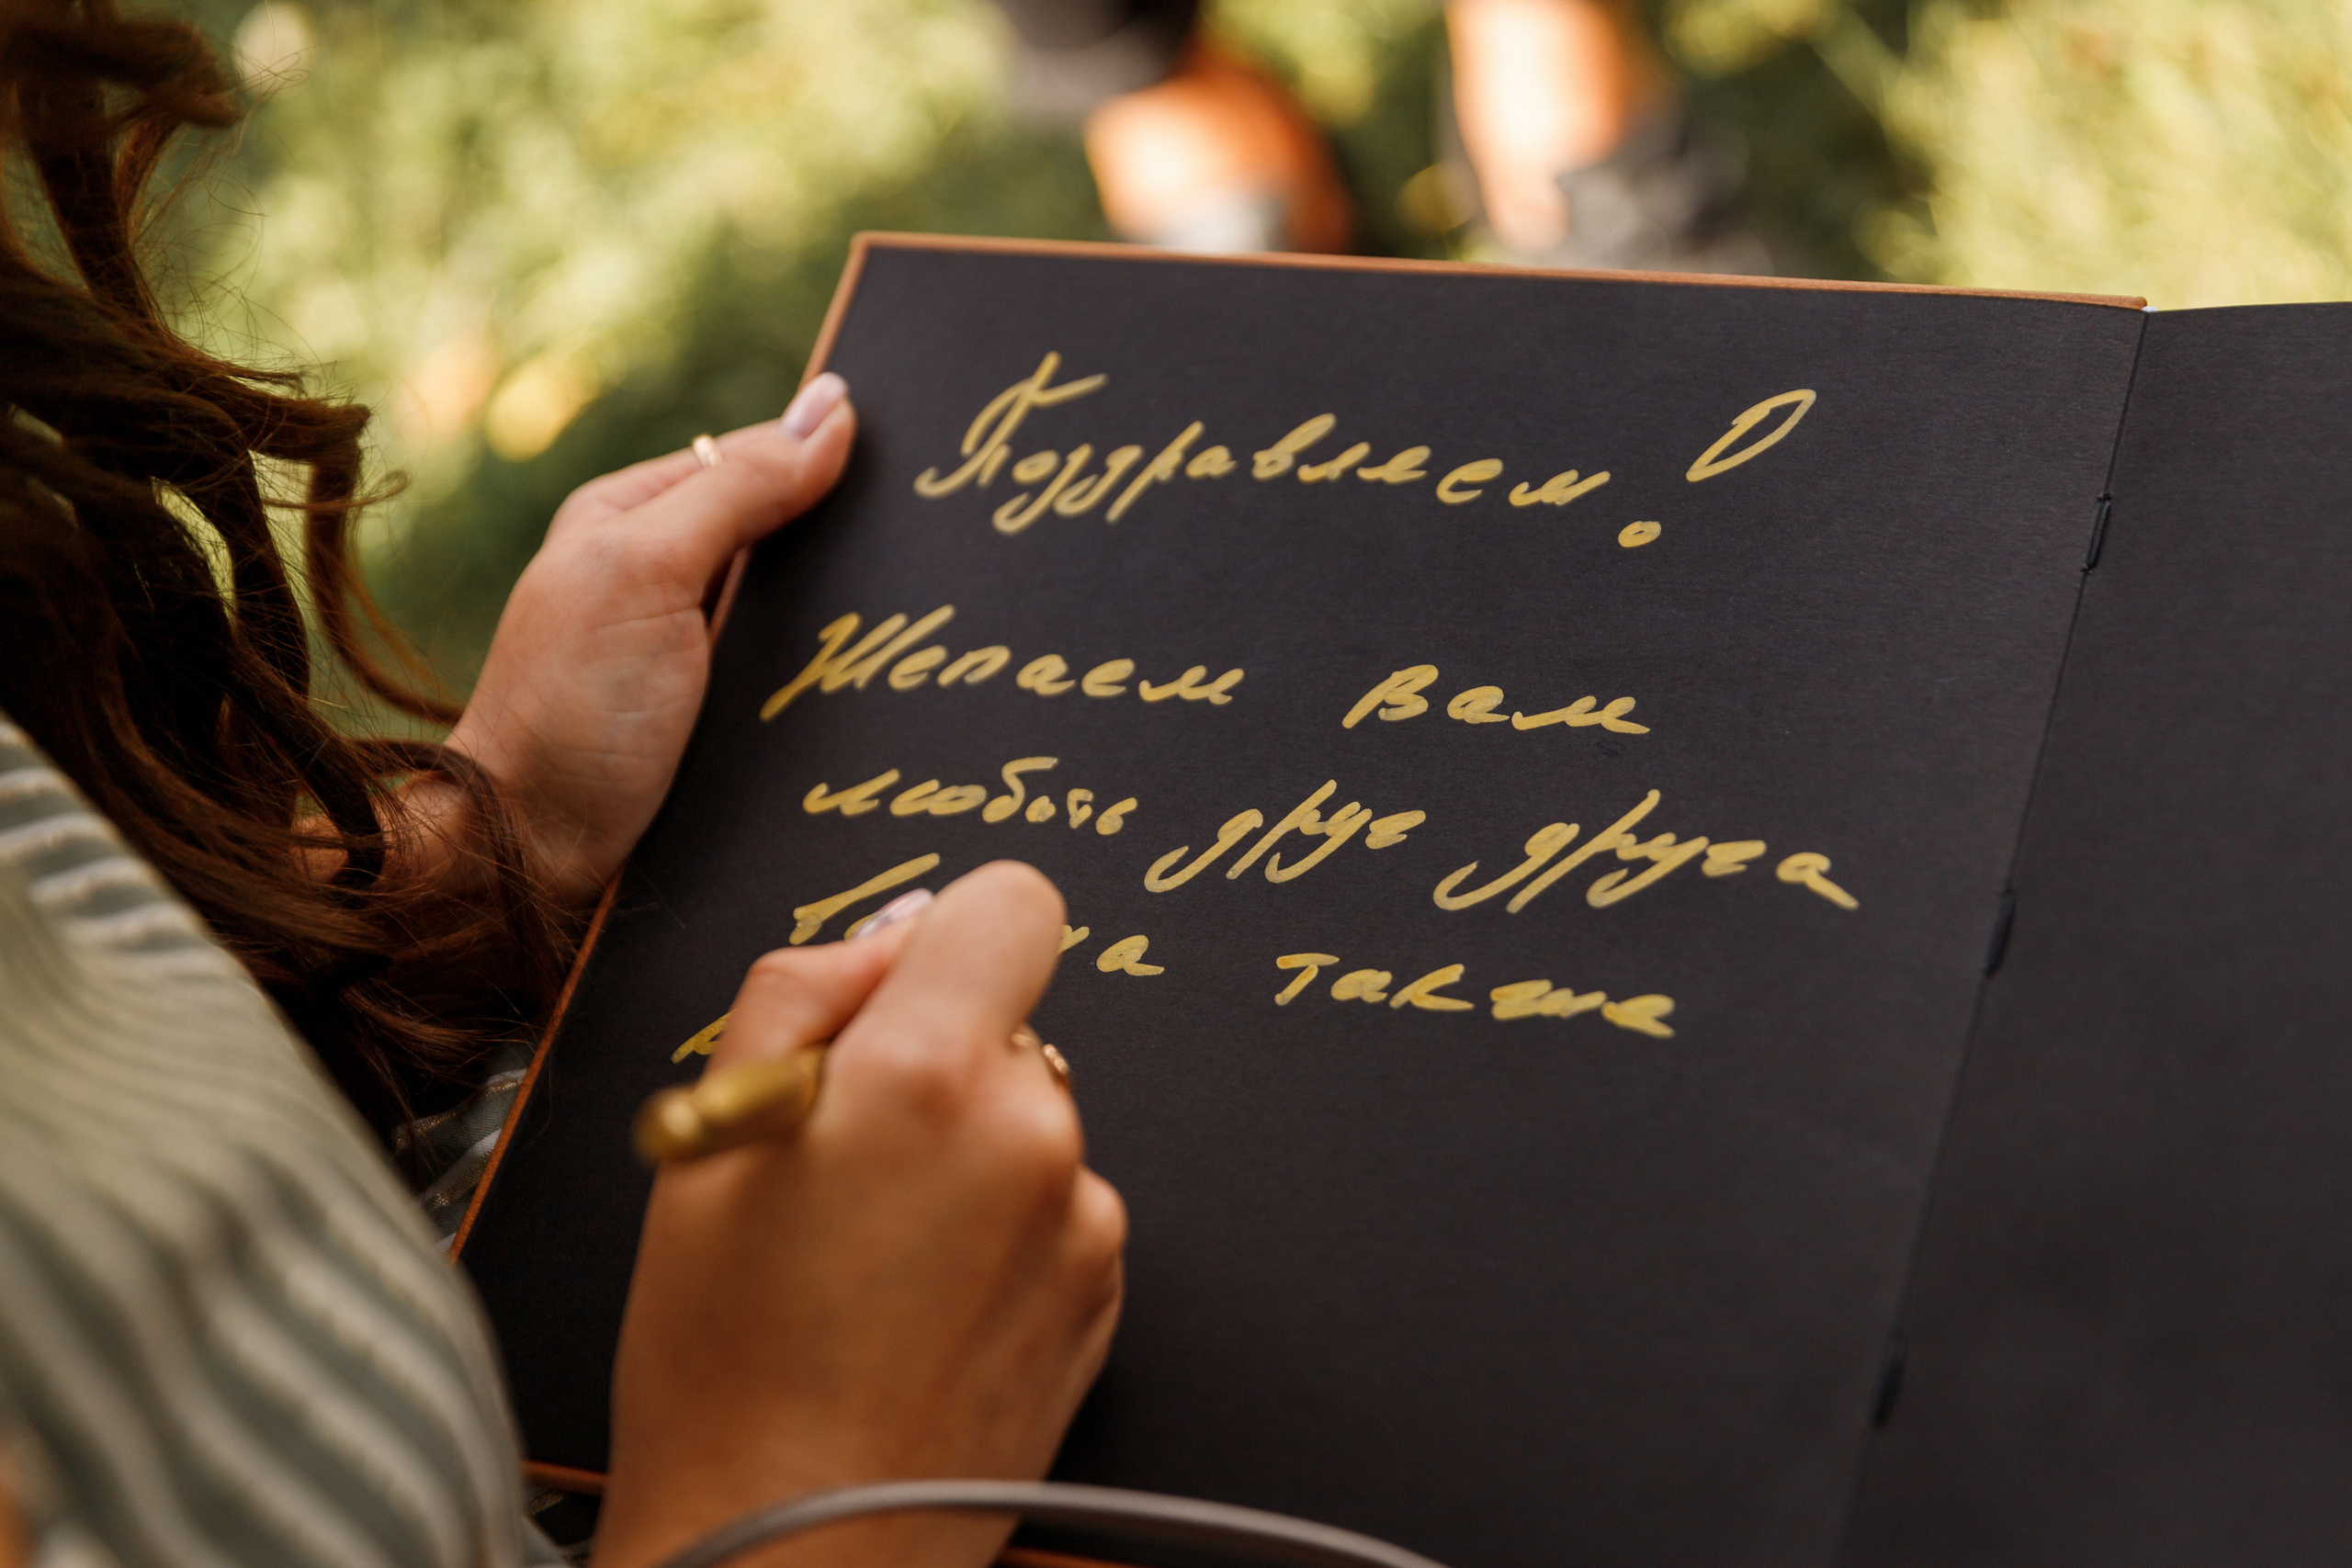 Поздравляем!
Желаем Вам
любить друг друга
также